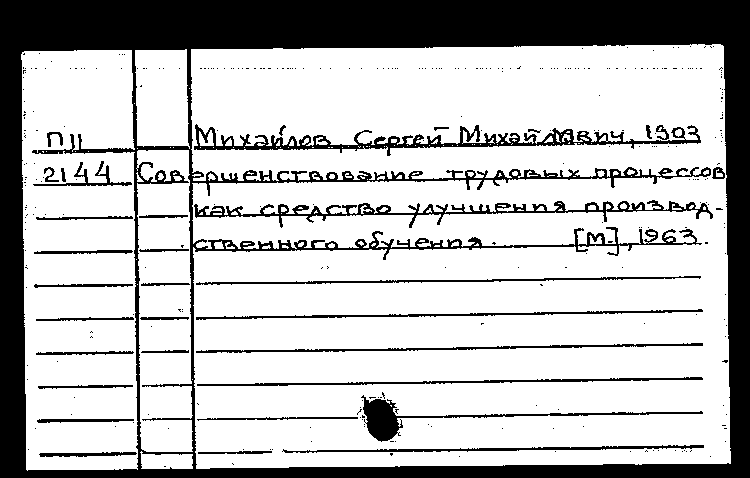 П11 Михайлов, Сергей Михайлович, 1903
2144 Совершенствование трудовых процессов
как средство улучшения производ-
ственного обучения. [М], 1963.